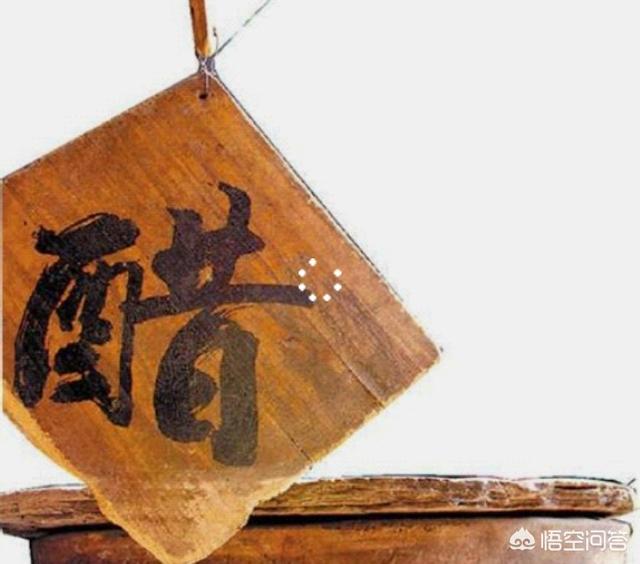 醋
悟空问答